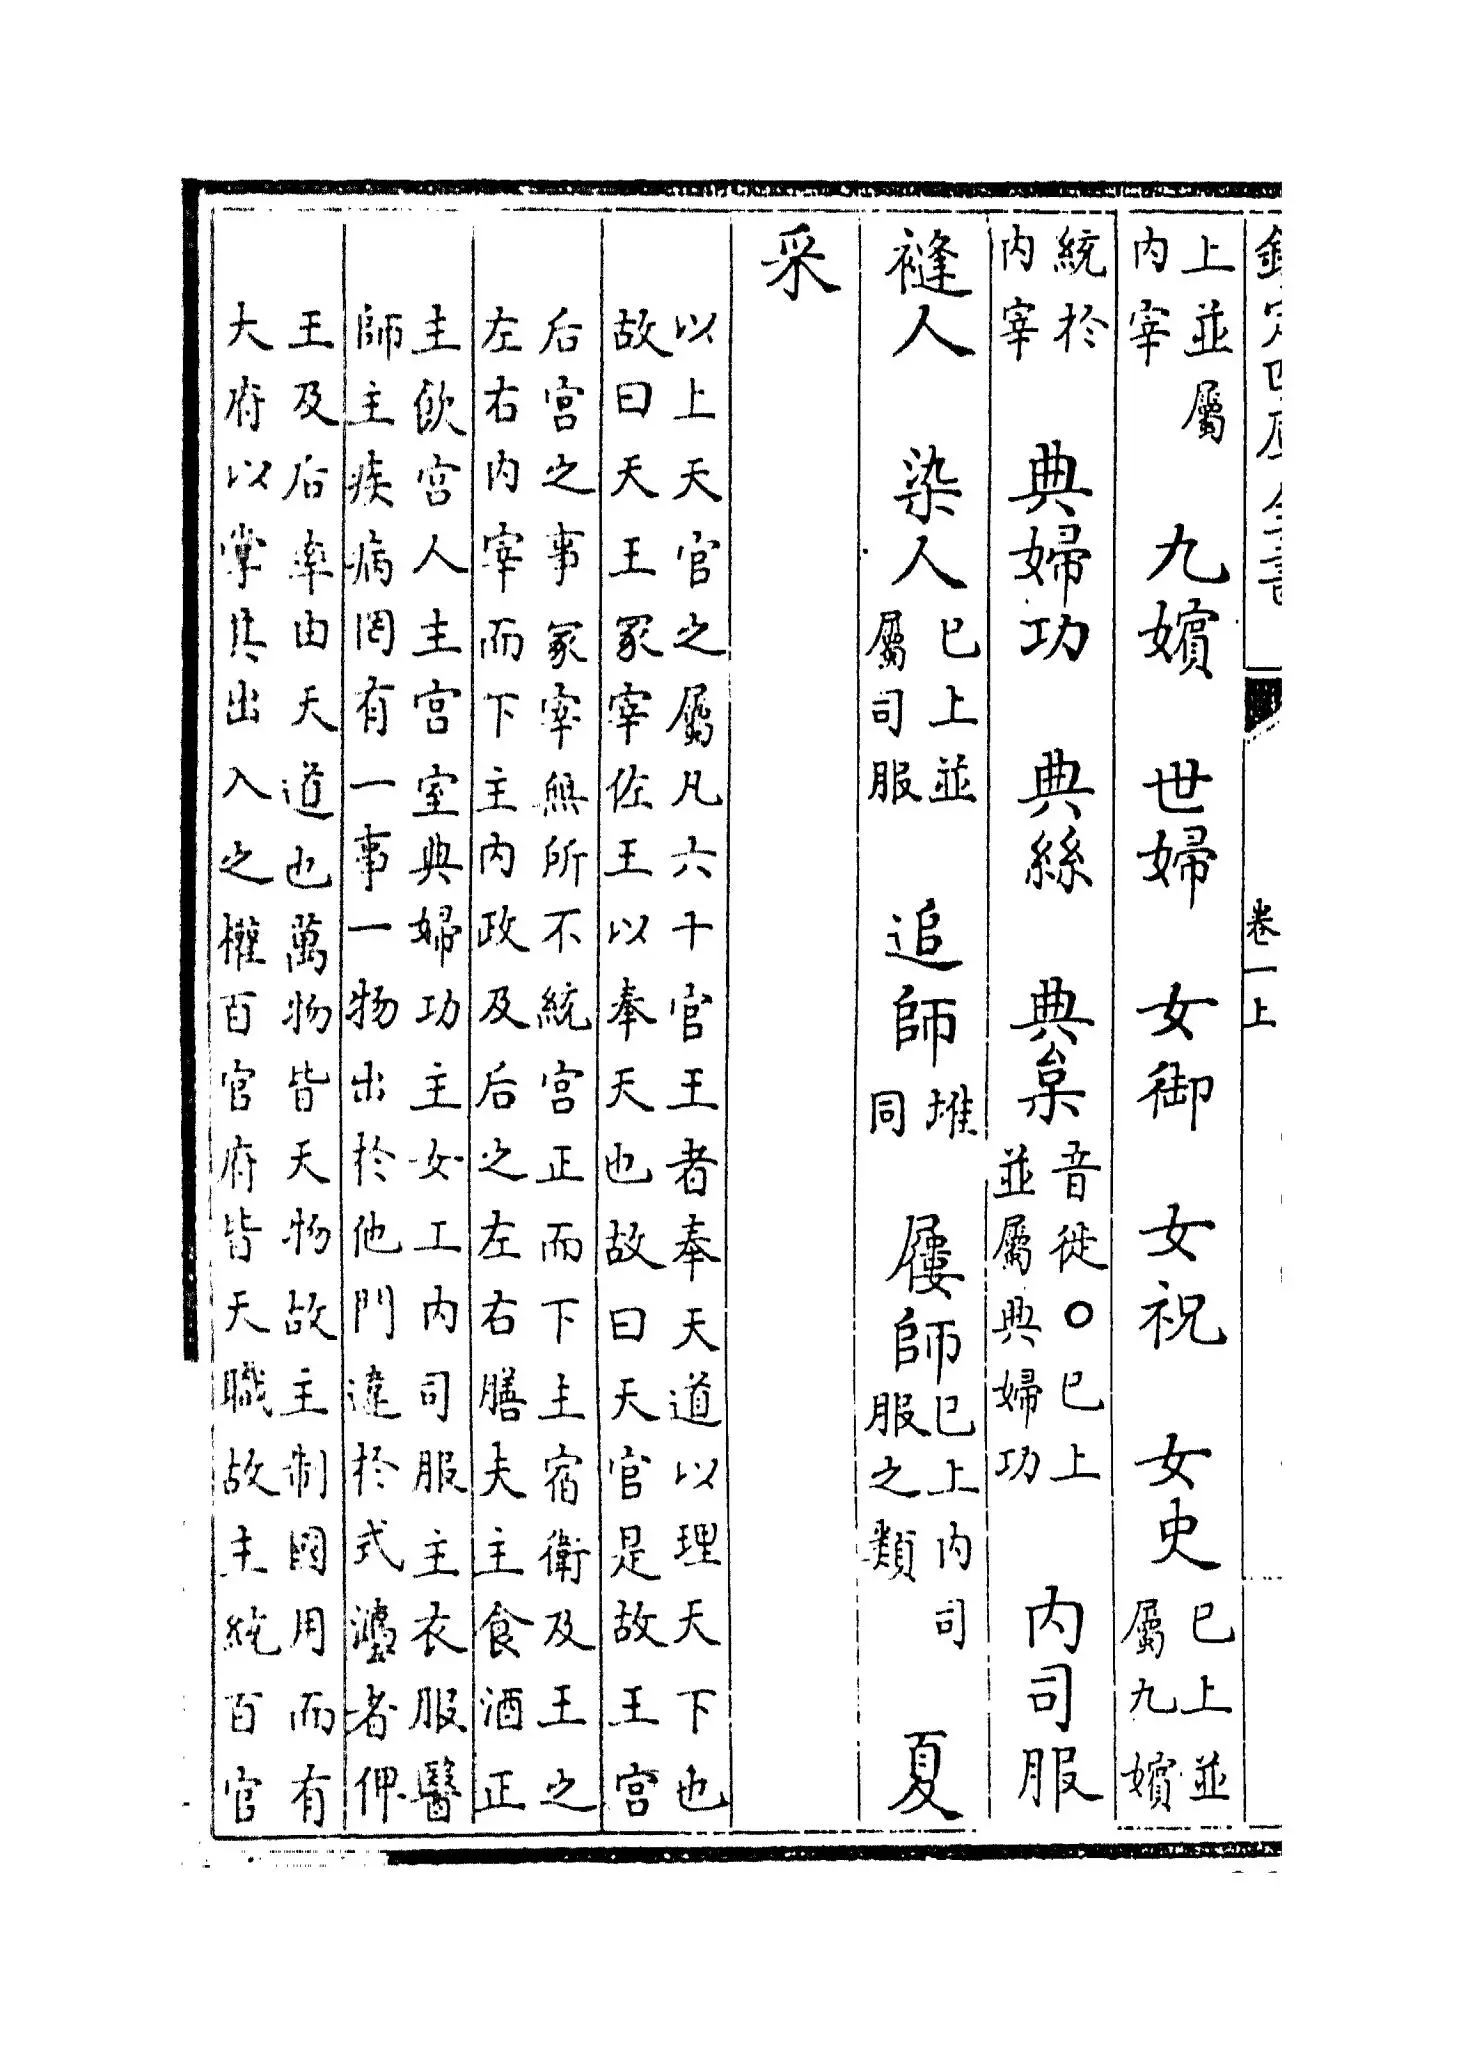 欽定四庫全書 卷一上
上並屬內宰 九嬪 世婦 女御 女祝 女史 已上並屬九嬪
統於內宰 典婦功 典絲 典枲 音徙○已上並屬典婦功 內司服
縫人 染人 已上並屬司服 追師 堆同 屨師 已上內司服之類 夏
采
以上天官之屬凡六十官王者奉天道以理天下也
故曰天王冢宰佐王以奉天也故曰天官是故王宮
后宮之事冢宰無所不統宮正而下主宿衛及王之
左右內宰而下主內政及后之左右膳夫主食酒正
主飲宮人主宮室典婦功主女工內司服主衣服醫
師主疾病罔有一事一物出於他門違於式灋者俾
王及后率由天道也萬物皆天物故主制國用而有
大府以掌其出入之權百官府皆天職故主統百官